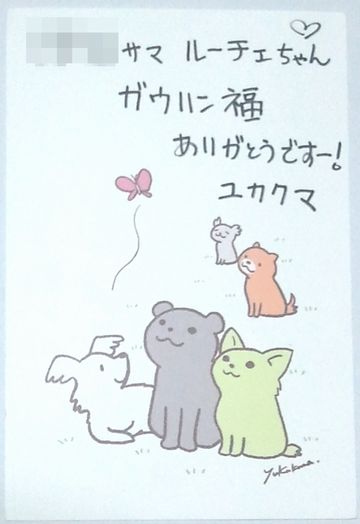 サマ ルーチェちゃん
ガウハン福
ありがとうですー!
ユカクマ
Yukakuma.